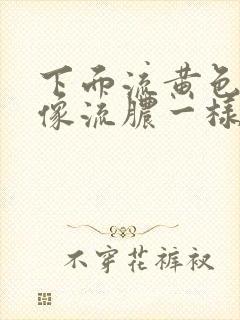 下面流黄色
像流膿一樣
不穿花裤衩